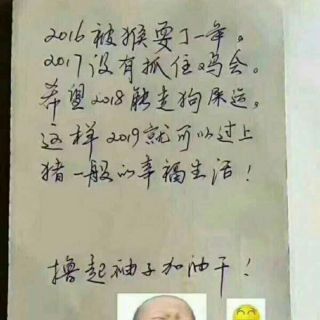 2016被猴耍了一年。
2017没有抓住鸡会。
希望2018能走狗屎运。
这样2019就可以过上
猪一般的幸福生活！
撸起袖子加油干！